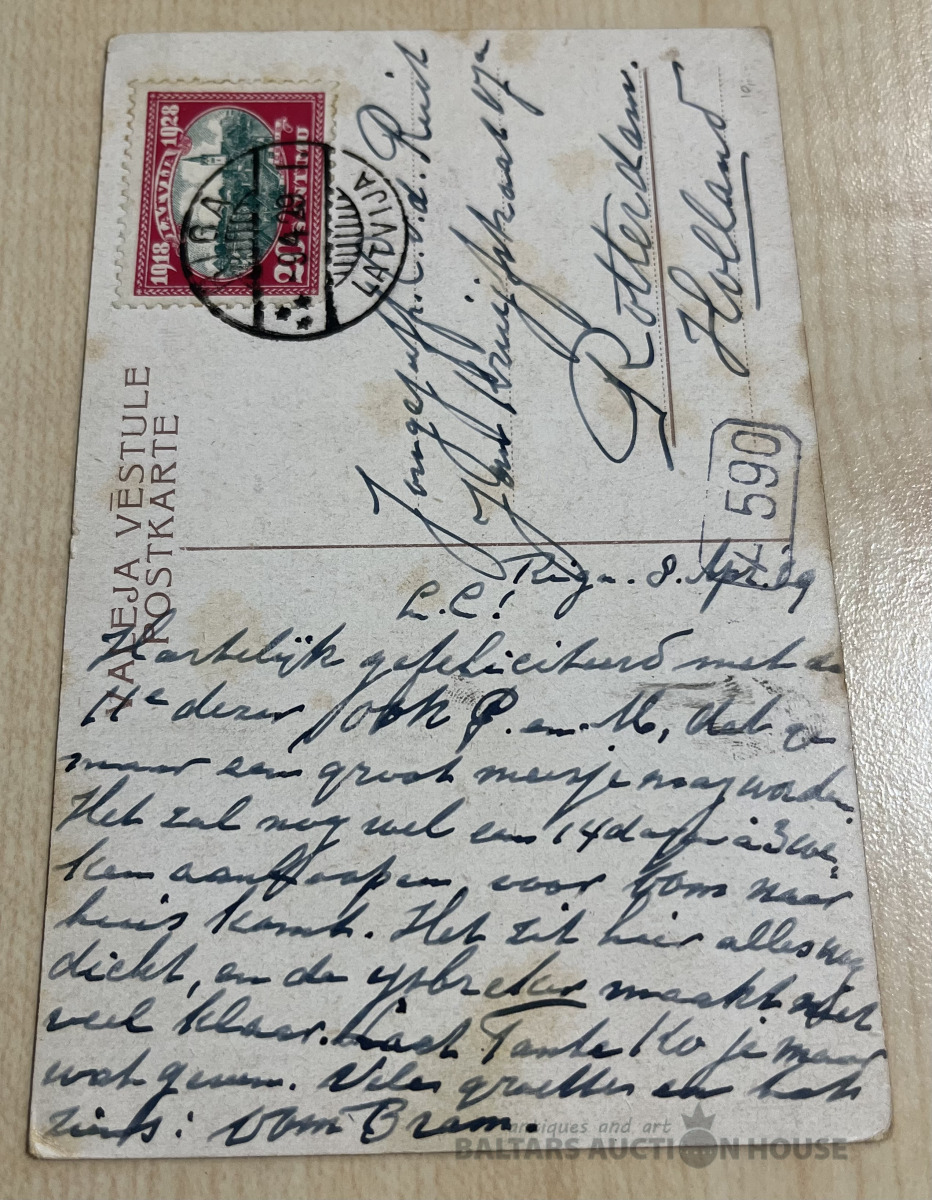 1918 LATVIJA 1928
20 SANTIMU
RIGA
20.4.29
LATVIJA
VALEJA VĒSTULE
POSTKARTE
v.d. Ruit
Rotterdam.
Holland
590
Riga. 8. Apr. 29
L.C!
Hartelijk gefeliciteerd met de
11e dezer ook P. en M, dat ze
maar een groot meisje mag worden
Het zal nog wel een 14 dagen à 3 we,
ken aanloopen, voor Oom naar
huis komt. Het zit hier alles nog
dicht, en de ijsbreker maakt niet
veel klaar. Laat Tante Ko je maar
wat geven. Vele groeten en tot
ziens: Oom Bram.
antiques and art
BALTARS AUCTION HOUSE